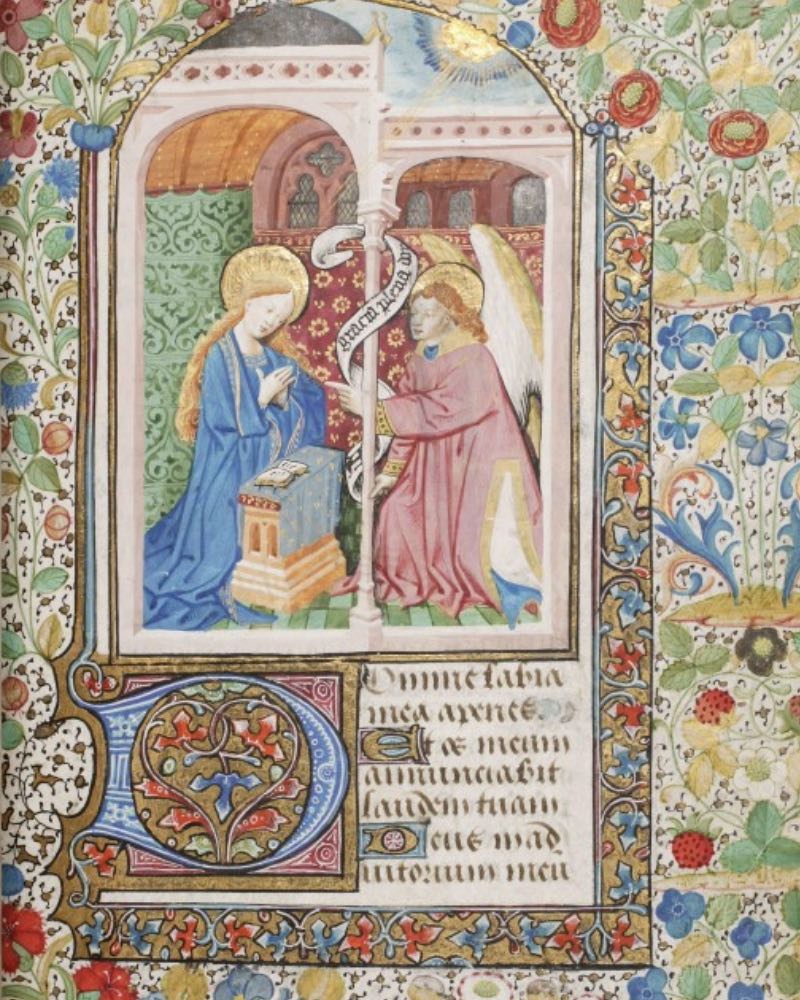 gracia plena
DOmine labia
mea aperies
Et os meum
annunciabit
laudem tuam
Deus in ad
iutorium meu